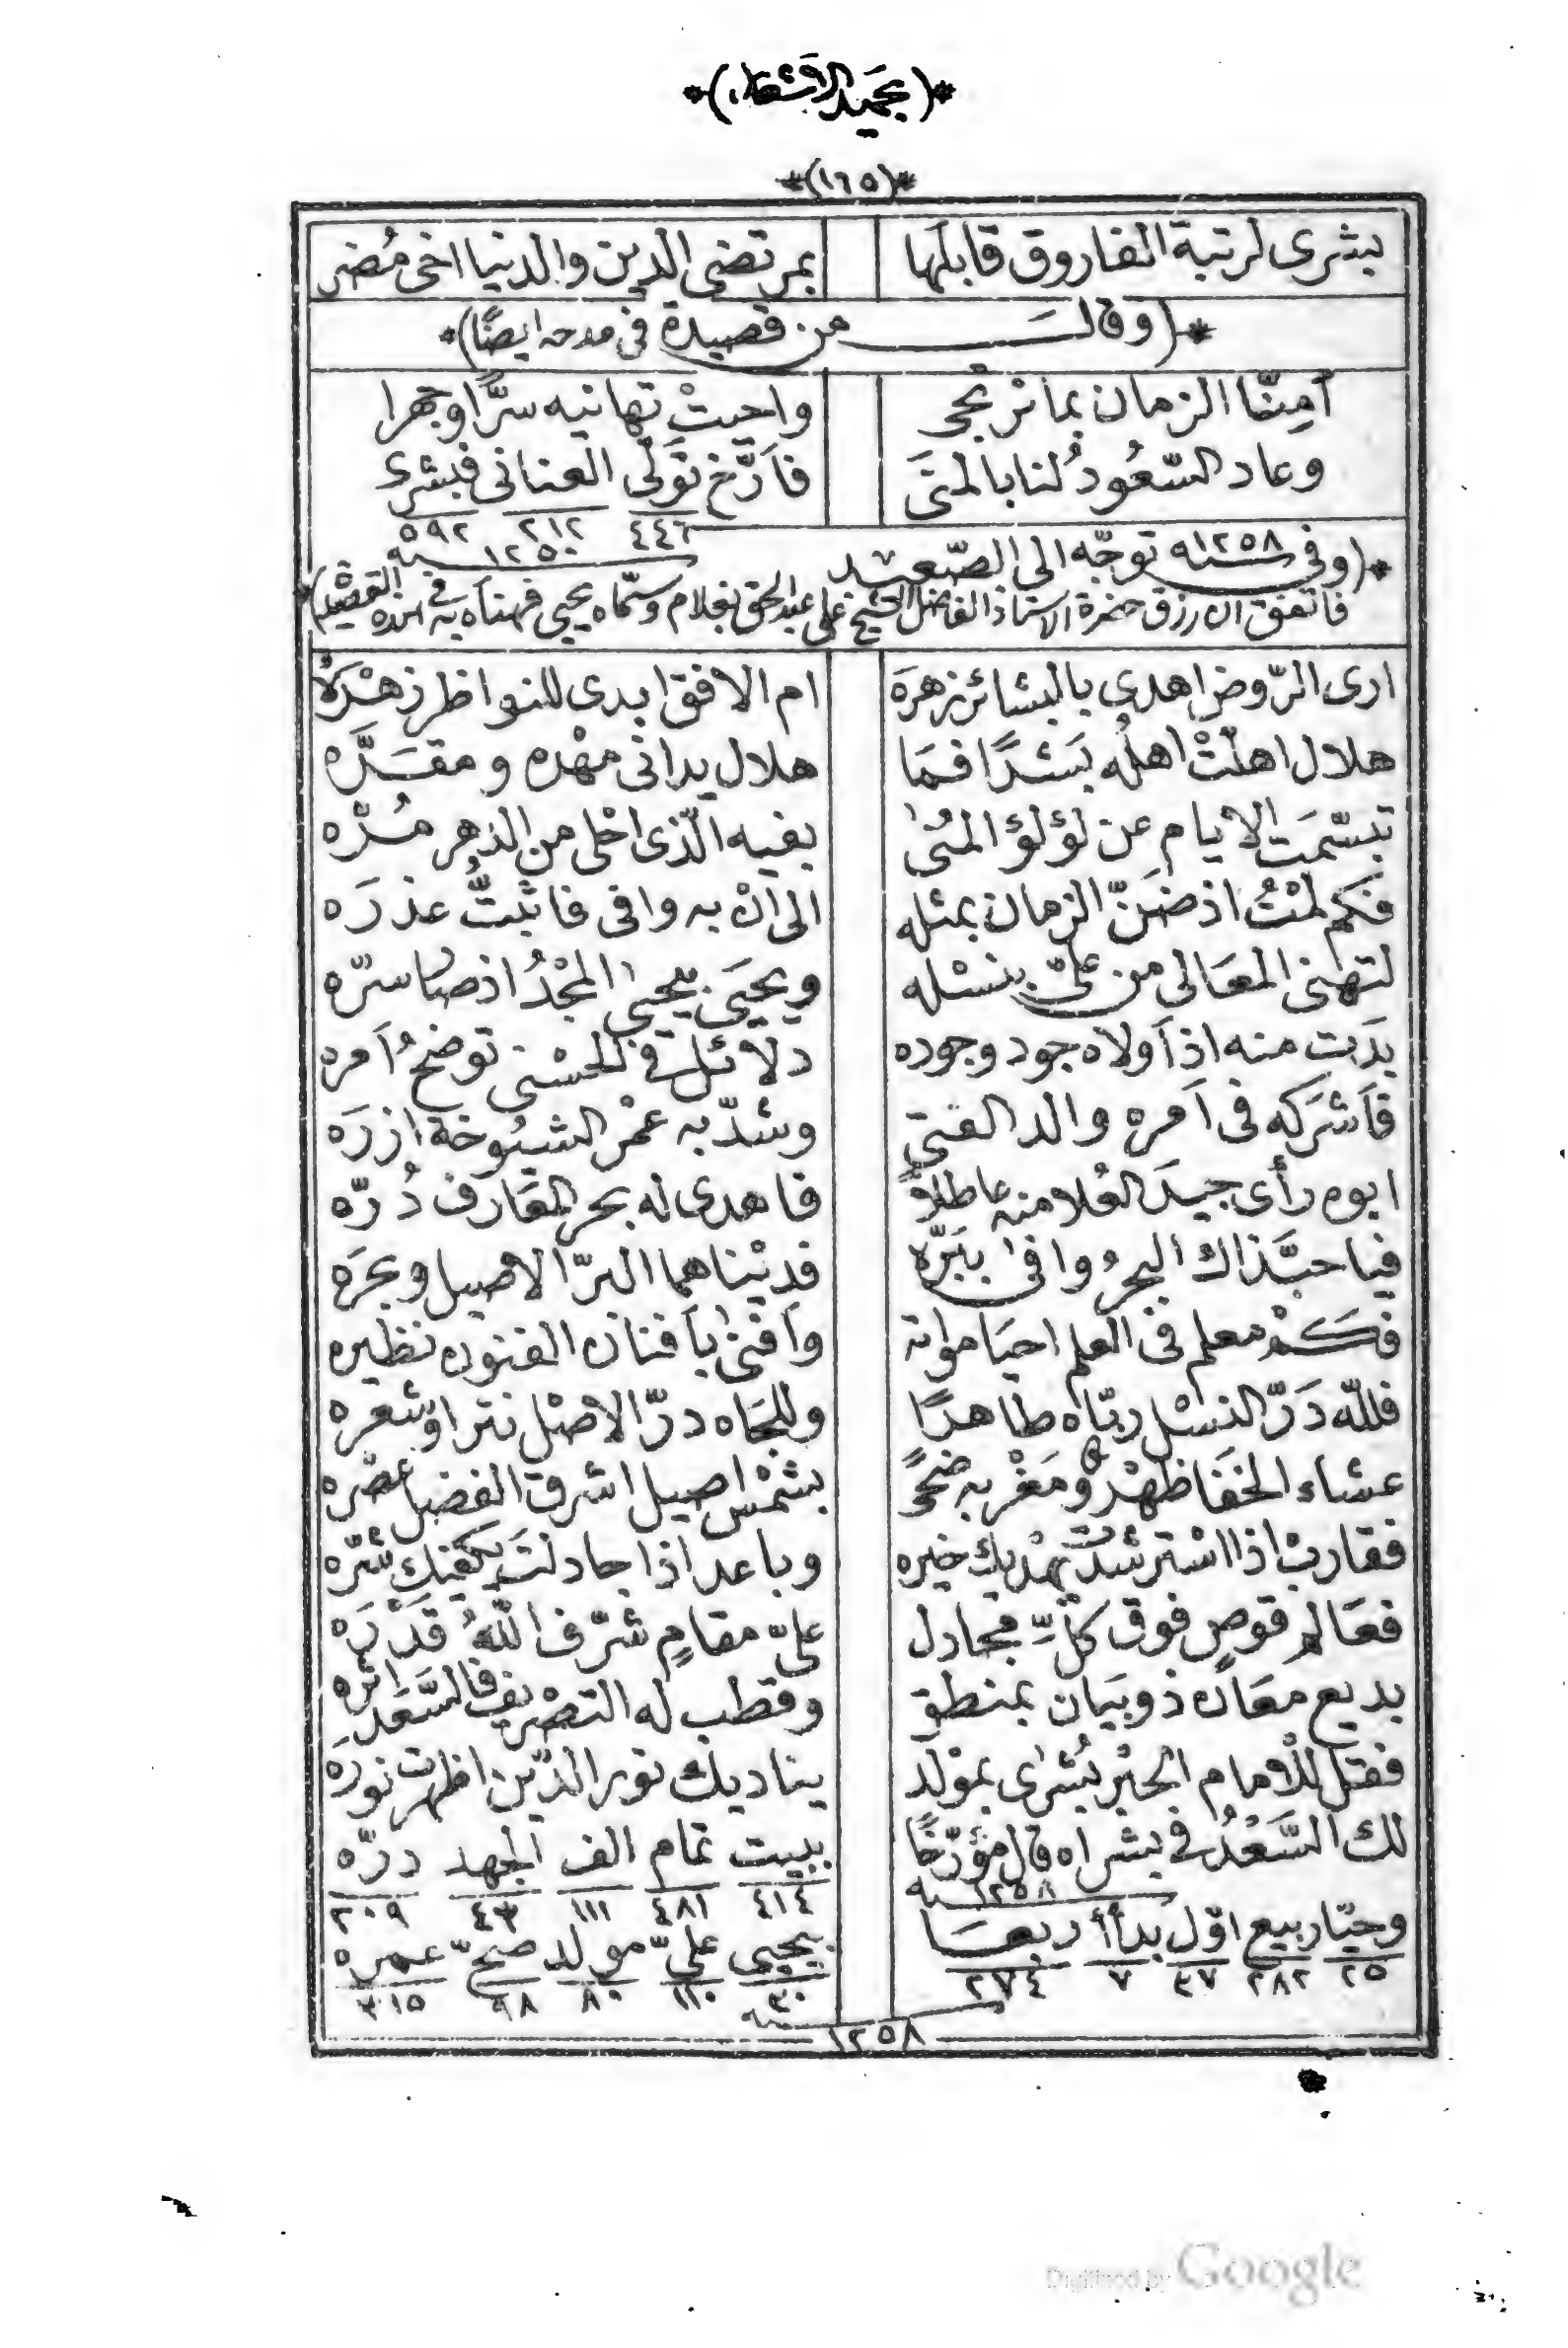 *(بحميد الاشعار)*
*(١٦٥)*
بشرى لرتبة الفاروق قابلها بمرتضى الدين والدنيا اخى مُضر
*(وقالــ من قصيدة فى مدحه ايضًا)*
أمِنّا الزمان بما نرتجى واحيتْ تهانيه سرًّا وجهرا
وعاد السّعُودُ لنا بالمنَى فأرّخ تَوَلّى العنانى فبشرى
٤٤٦ ٢١٢ ٥٩٢
سنه ١٢٥٠
*(وفى سنه ١٢٥٨ توجّه الى الصّعيد
فاتفق ان رزق حضرة الاستاذ الفاضل الشيخ على عبد الحق بغلام وسمّاه يحيى فهنأه به فى هذه القصيدة)*
ارى الرّوض اهدى بالبشائر زهرَه ام الافق ابدى للنواظر زهْرَهُ
هلال اهلّتْ اهلُه بَشَرًا فمَا هلال يدانى مهْده ومقَرَّه
تبسّمَت الايام عن لؤلؤ المُنى بفيه الّذى احْلى من الدهر مُرّه
فكم لمْتُ اذ ضَنّ الزمان بمثله الى انْ به وافى فاثبتُّ عذرَه
لتهنى المعَالى من علىّ بنسْله ويحيَى بيحيى المجْدُ اذ صار سرّه
بدَت منه اذ أولاه جود وجوده دلائل فى الحسْنى توضحُ أمره
فأشركه فى أمره والد الفتى وشدّ به عمْر الشيُوخة ازرَه
ابوه رأى جيدَ العُلا منه عاطلاً فاهدى له بحر المعَارف دُرّه
فيا حبّذاك البحرُ وافى ببَرّه فديْناهما البرّ الاصيل وبحرَه
فكمْ معلم فى العلم احيَا مواته وأفنى بأفنان الفنون نظيره
فللّه دَرّ النسْل ربّاه طاهرًا وللجَاه درّ الاصْل نثرا وشعره
عشاء الخفَا ظهْرٌ ومَغْربه ضحًى بشمْس اصيل اشرق الفضل عصْره
فقاربْ اذا اسْترشدْتَ يهْديك خيره وباعد اذا جادلتَ يَكفيك شرّه
فعَالم قوص فوق كلّ مجادل علىّ مقامٍ شرّف اللّهُ قَدْرَه
بديع معَان ذو بيَان بمنطق وقطب له التصْريف فالسَّعْد اثره
فقل للامام الحبْر بُشْرى بموْلد يناديك نور الدّين اظهرت نوره
لك السَّعْدُ فى بشراه قال مؤرّخًا ببيت تمام الف الجهد درّه
سنه ١٢٥٨ ٤١٤ ٤٨١ ١١١ ٤٣ ٢٠٩
وحيّا ربيع اوّل بدأ أربعَا بيحيى علىّ مولد صحّ عمره
٢٥ ٢٨٢ ٣٧ ٧ ٢٧٤ ٣٠ ١١٠ ٨٠ ٩٨ ٣١٥
سنه ١٢٥٨
Digitized by Google